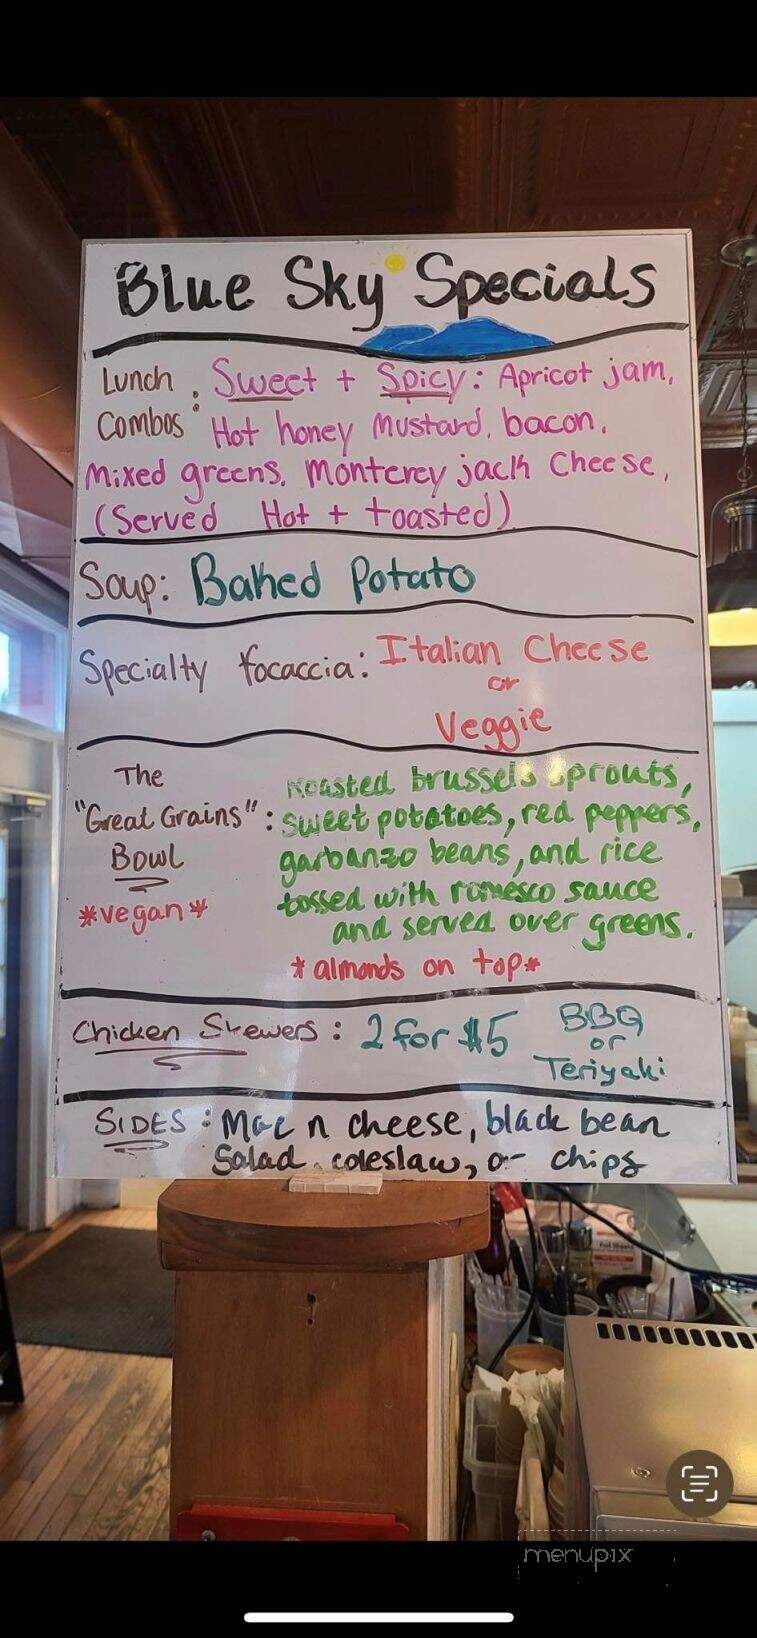 Blue Sky Specials
Lunch Combos: Sweet + Spicy: Apricot jam,
Hot honey Mustard, bacon,
Mixed greens, Monterey jack Cheese,
(Served Hot + toasted)
Soup: Baked Potato
Specialty focaccia: Italian Cheese
or
Veggie
The "Great Grains" Bowl
*vegan*
: Roasted brussels sprouts,
sweet potatoes, red peppers,
garbanzo beans, and rice
tossed with romesco sauce
and served over greens.
* almonds on top*
Chicken Skewers: 2 for $5 BBQ
or
Teriyaki
SIDES: Mac n cheese, black bean
Salad, coleslaw, or chips
menupix